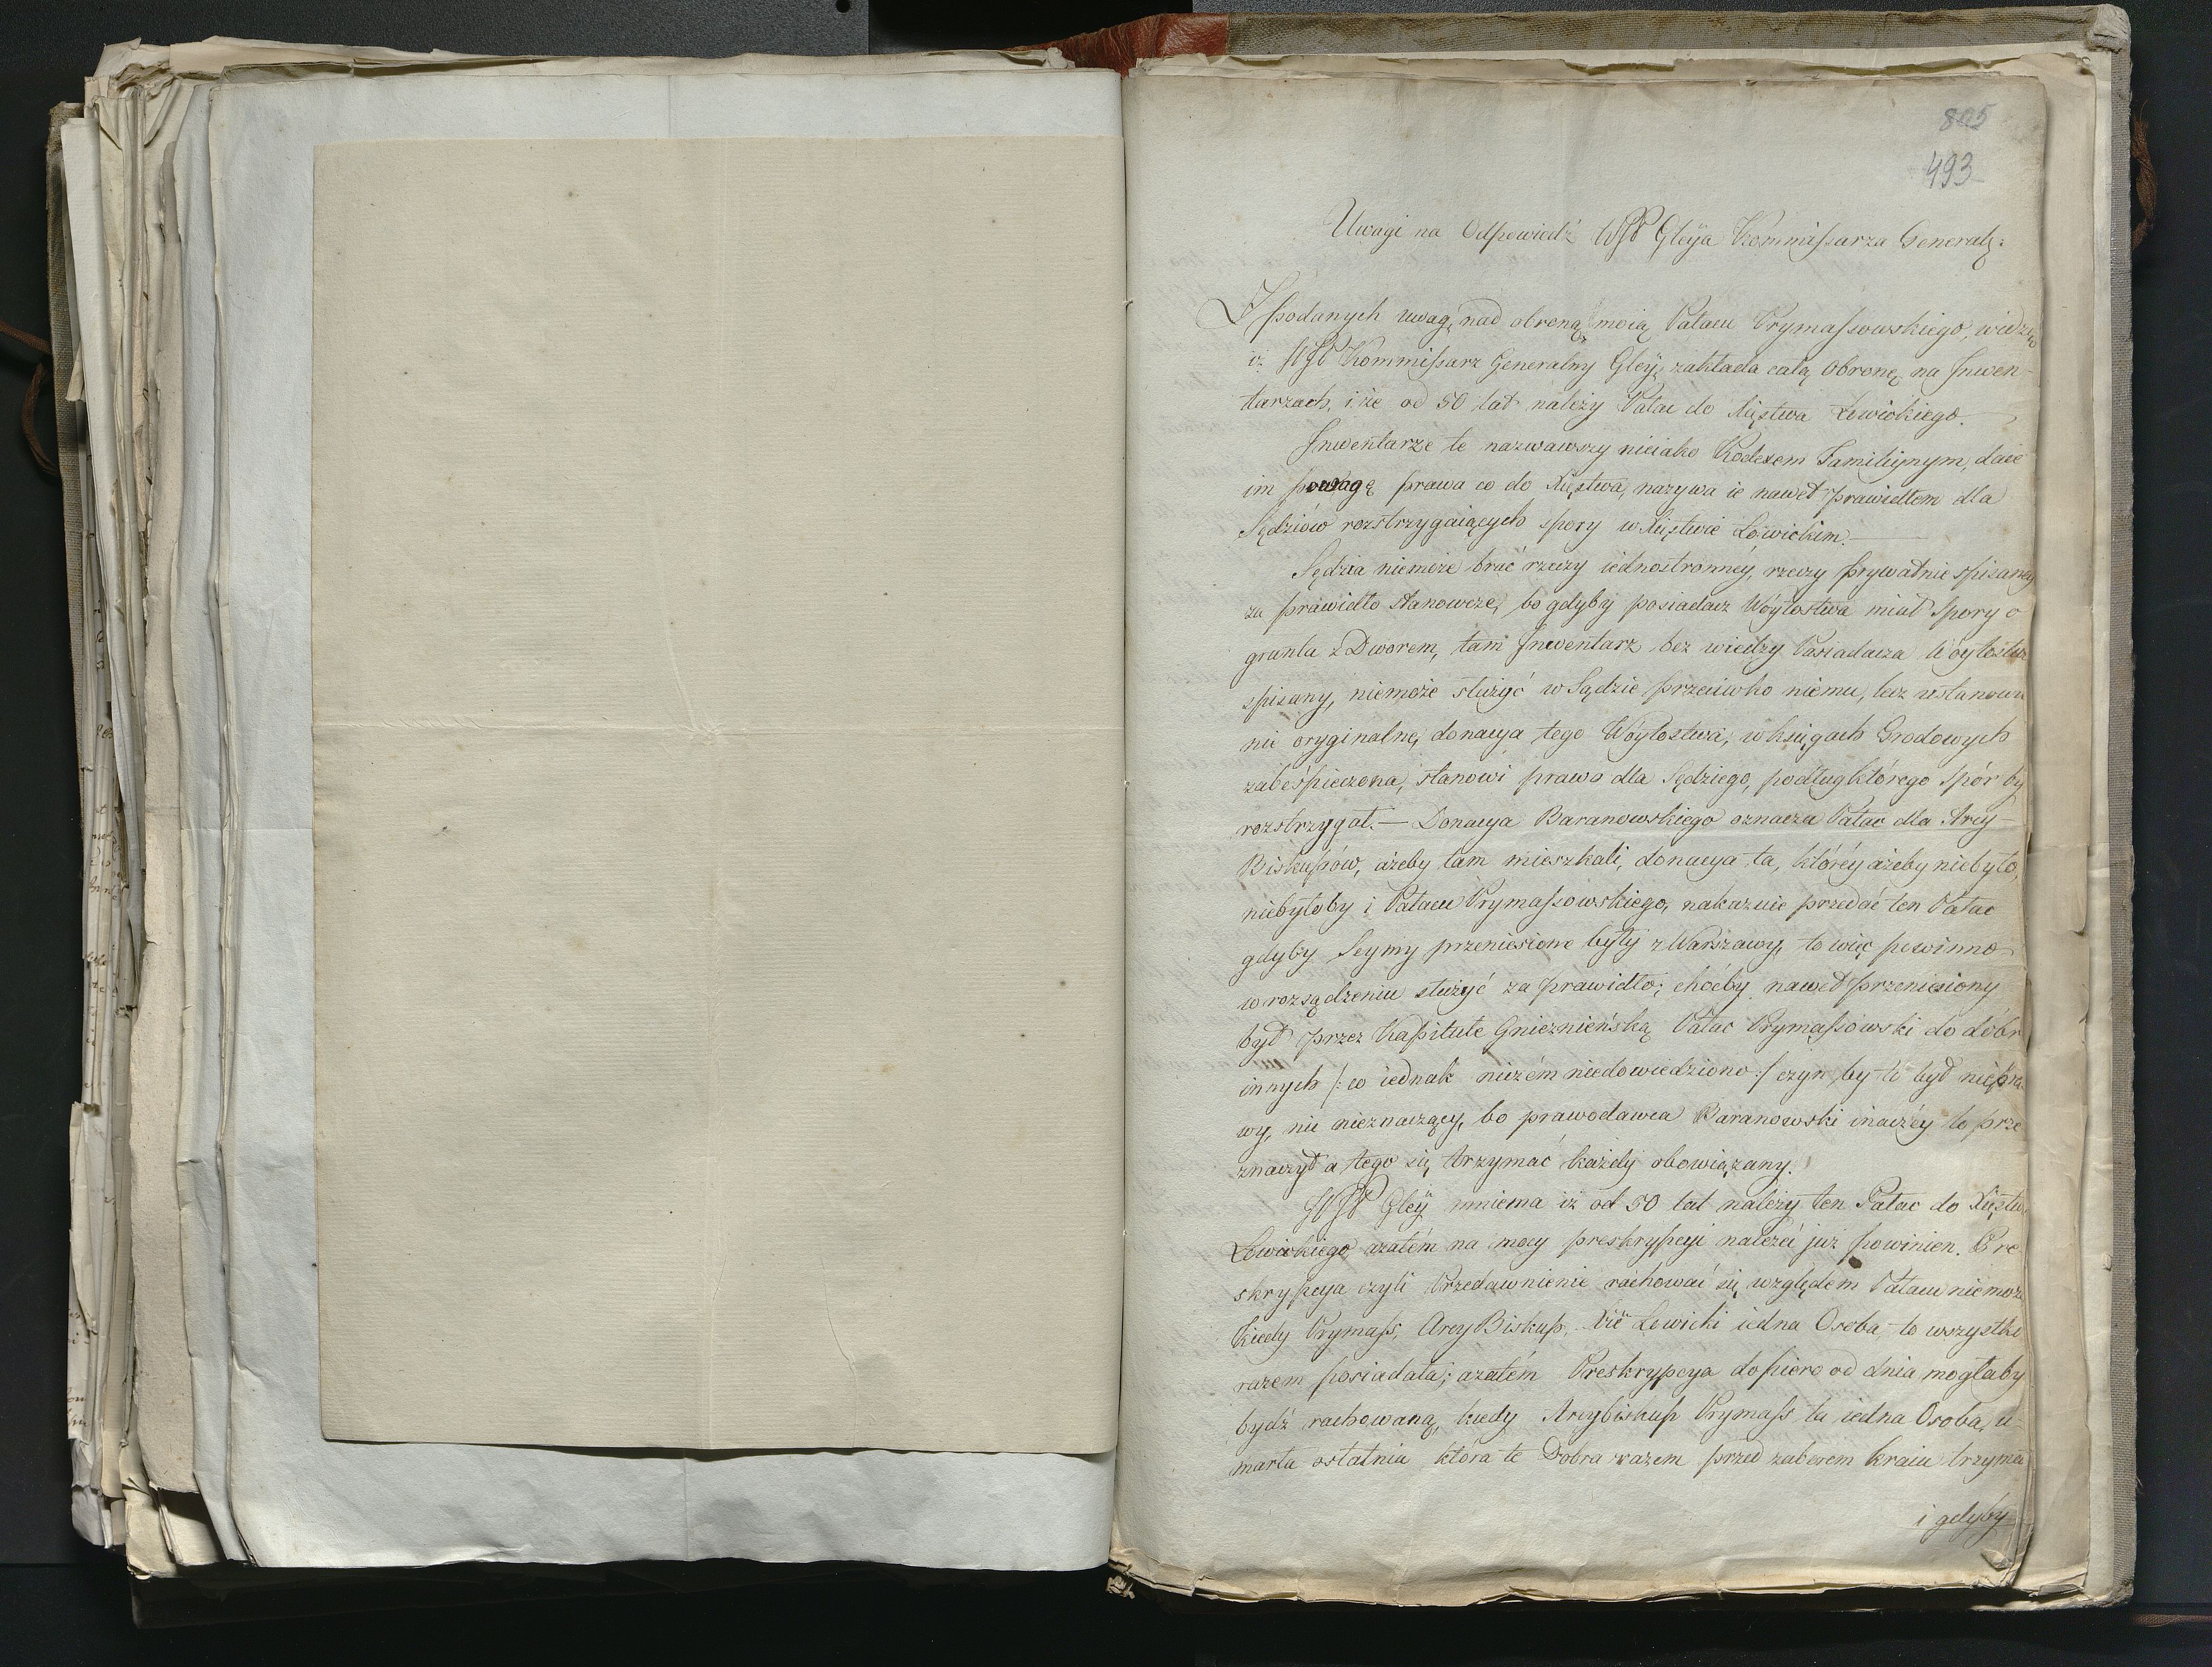 805
493
Uwagi na Odpowiedź WJP Gleÿa Kommissarza General:
Z podanych uwag, nad obroną moią Pałacu Prymassowskiego, widzę,
iż WJP Kommissarz Generalny Gleÿ, zakłada całą obronę na Inwen-
tarzach, i że od 50 lat należy Pałac do Xięstwa Łowickiego.
Inwentarze te nazwawszy nieiako Kodexem Familiynym, daie
im powagę prawa co do Xięstwa, nazywa ie nawet prawidłem dla
Sędziów rozstrzygaiących spory w Xięstwie Łowickim.
Sędzia niemoże brać rzeczy iednostronney, rzeczy prywatnie spisaney
za prawidło stanowcze, bo gdyby posiadacz Wóytostwa miał Spory o
grunta z Dworem, tam Inwentarz bez wiedzy Posiadacza Wóytostwa
spisany, niemoże służyć w Sądzie przeciwko niemu, lecz ustanowie
nie oryginalne, donacya tego Wóytostwa, w księgach Grodowych
zabeśpieczona, stanowi prawo dla Sędziego, podług którego spór by
rozstrzygał. — Donacya Baranowskiego oznacza Pałac dla Arcy-
Biskupów, ażeby tam mieszkali, donacya ta, któréy ażeby niebyło,
niebyłoby i Pałacu Prymassowskiego, nakazuie przedać ten Pałac
gdyby Seymy przeniesione były z Warszawy, to więc powinno
w rozsądzeniu służyć za prawidło; choćby nawet przeniesiony
był przez Kapitułę Gnieznieńską Pałac Prymassowski do dóbr
innych /: co iednak niczém niedowiedziono :/ czyn by to był niepra
wy, nic nieznaczący, bo prawodawca Baranowski inaczéy to prze
znaczył a tego się trzymać każdy obowiązany.
WJP Gleÿ mniema iż od 50 lat należy ten Pałac do Xięstw
Łowickiego azatém na mocy preskrypcyi należeć już powinien. Pre
skrypcya czyli Przedawnienie rachować się względem Pałacu niemoże
kiedy Prymass, Arcy Biskup, Xże Łowicki iedna Osoba to wszystko
razem posiadała; azatém Preskrypcya dopiero od dnia mogłaby
bydź rachowaną, kiedy Arcybiskup Prymass ta iedna Osoba, u-
marła ostatnia która te Dobra razem przed zaborem kraiu trzymała
i gdyby